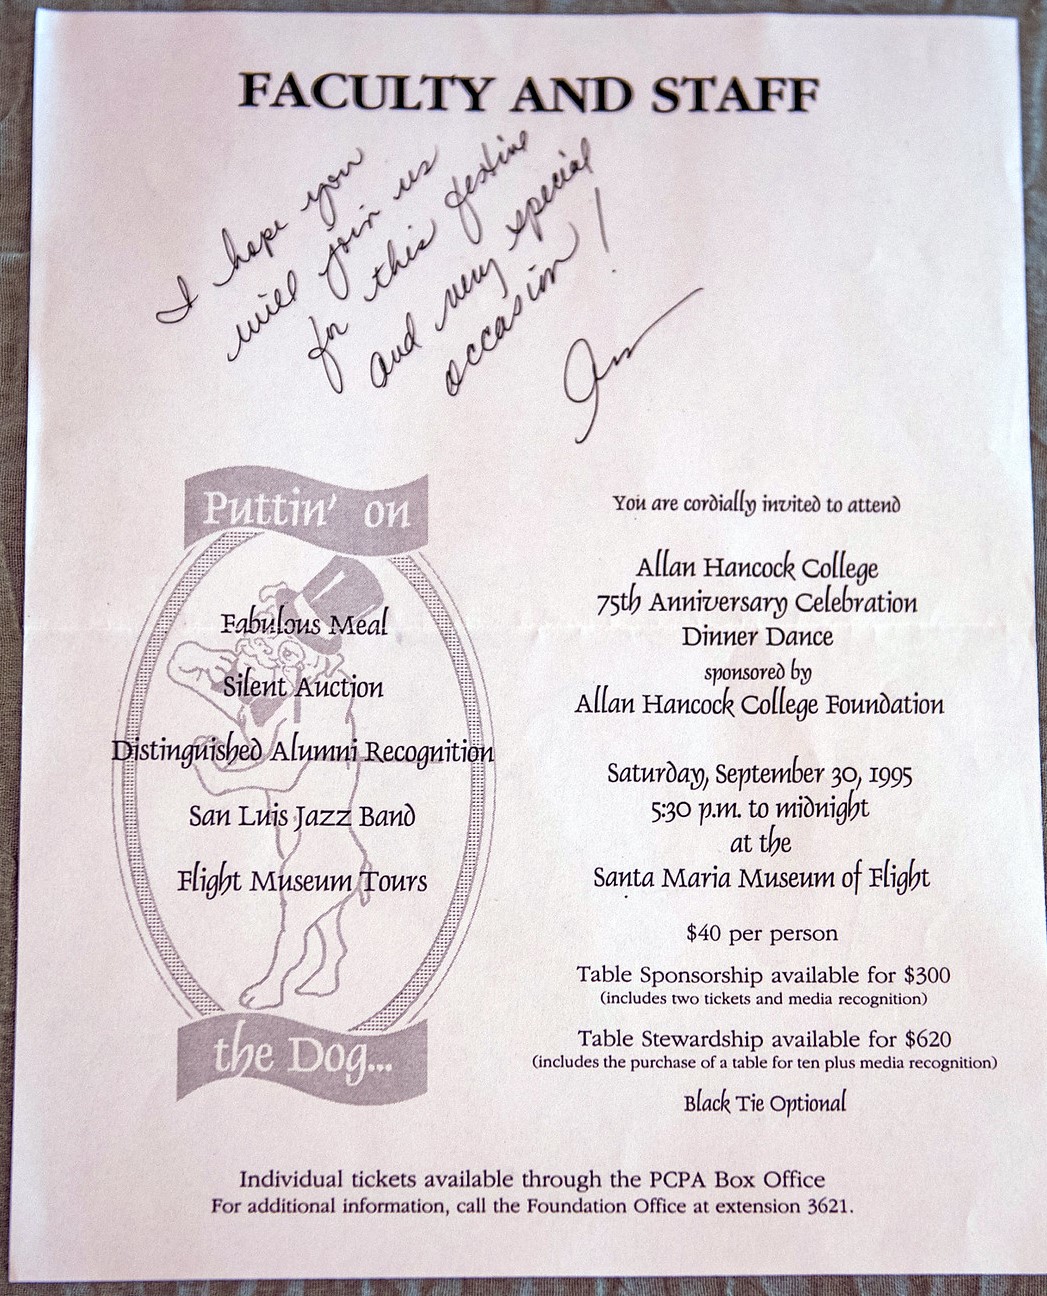 FACULTY AND STAFF
I hope you
will join us
for this festive
and very special
occasion!
Puttin' on
Fabulous Meal
Silent Auction
Distinguished Alumni Recognition
San Luis Jazz Band
Flight Museum Tours
the Dog...
You are cordially invited to attend
Allan Hancock College
75th Anniversary Celebration
Dinner Dance
sponsored by
Allan Hancock College Foundation
Saturday, September 30, 1995
5:30 p.m. to midnight
at the
Santa Maria Museum of Flight
$40 per person
Table Sponsorship available for $300
(includes two tickets and media recognition)
Table Stewardship available for $620
(includes the purchase of a table for ten plus media recognition)
Black Tie Optional
Individual tickets available through the PCPA Box Office
For additional information, call the Foundation Office at extension 3621.